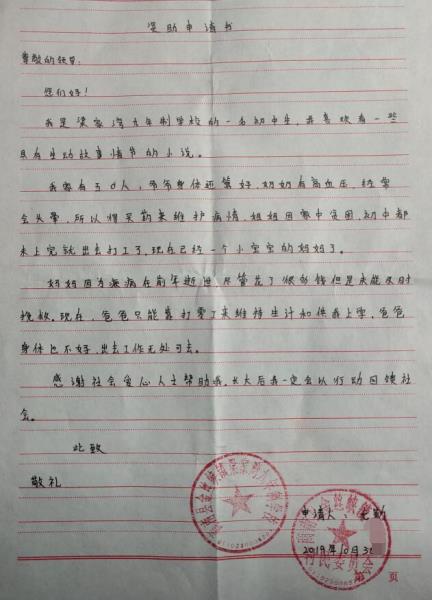 资助申请书
尊敬的领导:
您们好!
我是梁家湾九年制学校的一名初中生,我喜欢看一些
具有生动故事情节的小说。
我家有五口人,爷爷身体还算好,奶奶有高血压,经常
会头晕,所以得买药来维护病情,姐姐因家中贫困,初中都
未上完就出去打工了,现在已经一个小宝宝的妈妈了。
妈妈因为疾病在前年逝世,尽管花了很多钱但是未能及时
挽救,现在,爸爸只能靠打零工来维持生计和供我上学,爸爸
身体也不好,出去工作无处可去。
感谢社会爱心人士帮助我,长大后我一定会以行动回馈社
会。
此致
敬礼
申请人:
2019年10月31
村民委员会
第 页